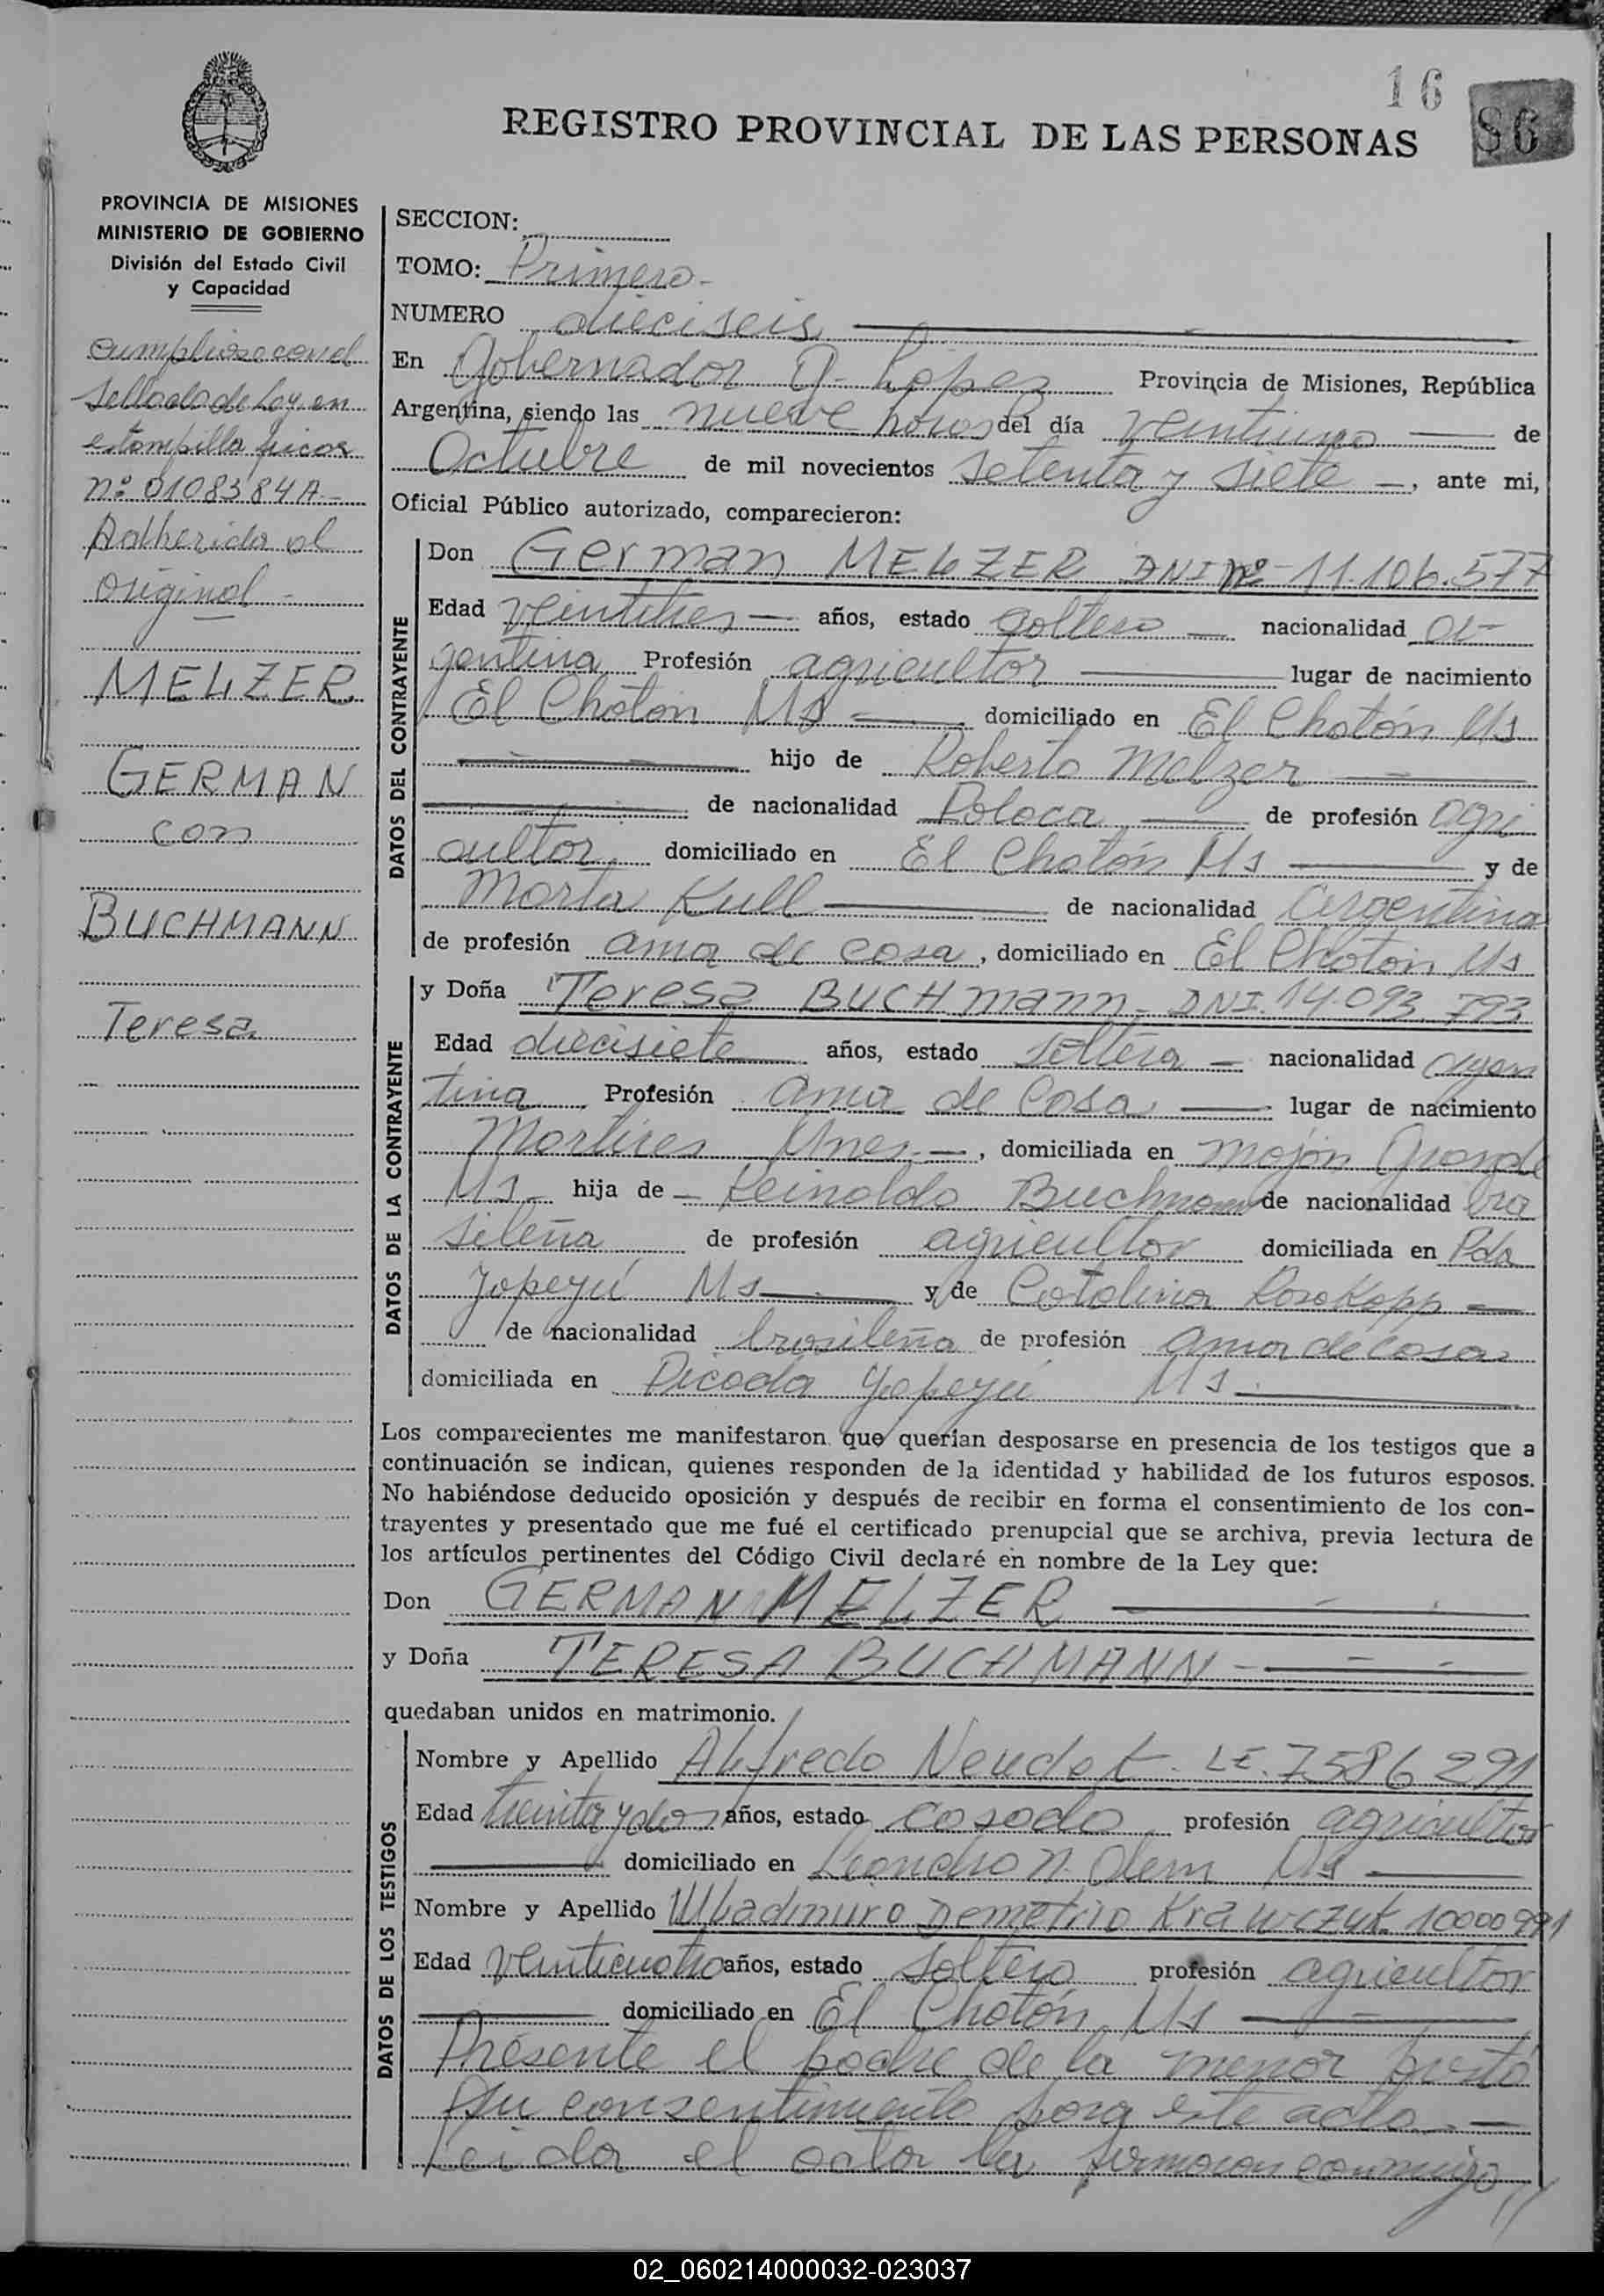 16
86
REGISTRO PROVINCIAL DE LAS PERSONAS
PROVINCIA DE MISIONES
MINISTERIO DE GOBIERNO
División del Estado Civil
y Capacidad
cumpliose con el
sellado de Ley en
estampilla fiscal
nº 0108384A -
Adherida al
original -
MELZER
GERMAN
con
BUCHMANN
Teresa
SECCION:
TOMO: Primero -
NUMERO dieciseis
En Gobernador J. Lopez Provincia de Misiones, República
Argentina, siendo las nueve horas del día veintiuno de
Octubre de mil novecientos setenta y siete -, ante mi,
Oficial Público autorizado, comparecieron:
DATOS DEL CONTRAYENTE
Don German MELZER DNI Nº 11.106.577
Edad veintitres años, estado soltero nacionalidad ar-
gentina Profesión agricultor lugar de nacimiento
El Chatón Ms domiciliado en El Chatón Ms
hijo de Roberto Melzer
de nacionalidad Polaca de profesión agri
cultor domiciliado en El Chatón Ms y de
Marta Kull de nacionalidad argentina
de profesión ama de casa, domiciliado en El Chatón Ms
DATOS DE LA CONTRAYENTE
y Doña Teresa BUCHmann - DNI. 14.093.793
Edad diecisiete años, estado soltera - nacionalidad argen
tina Profesión ama de Casa lugar de nacimiento
Mártires Mnes. -, domiciliada en mojón Grande
Ms - hija de - Reinoldo Buchmann de nacionalidad bra
sileña de profesión agricultor domiciliada en Pda
Yapeyú Ms y de Catalina Rosokopp -
de nacionalidad brasileña de profesión ama de casa
domiciliada en Picada Yapeyú Ms
Los comparecientes me manifestaron que querían desposarse en presencia de los testigos que a
continuación se indican, quienes responden de la identidad y habilidad de los futuros esposos.
No habiéndose deducido oposición y después de recibir en forma el consentimiento de los con-
trayentes y presentado que me fué el certificado prenupcial que se archiva, previa lectura de
los artículos pertinentes del Código Civil declaré en nombre de la Ley que:
Don GERMAN MELZER
y Doña TERESA BUCHMANN -
quedaban unidos en matrimonio.
DATOS DE LOS TESTIGOS
Nombre y Apellido Alfredo Neudet - LE. 7586291
Edad treinta y dos años, estado casado profesión agricultor
domiciliado en Leandro N. Alem Ms
Nombre y Apellido Wladimiro Demetrio Krawczuk 10000991
Edad veinticuatro años, estado soltero profesión agricultor
domiciliado en El Chatón Ms
Presente el padre de la menor prestó
su consentimiento para este acto -
Leida el acta la firmaron conmigo //
02_060214000032-023037